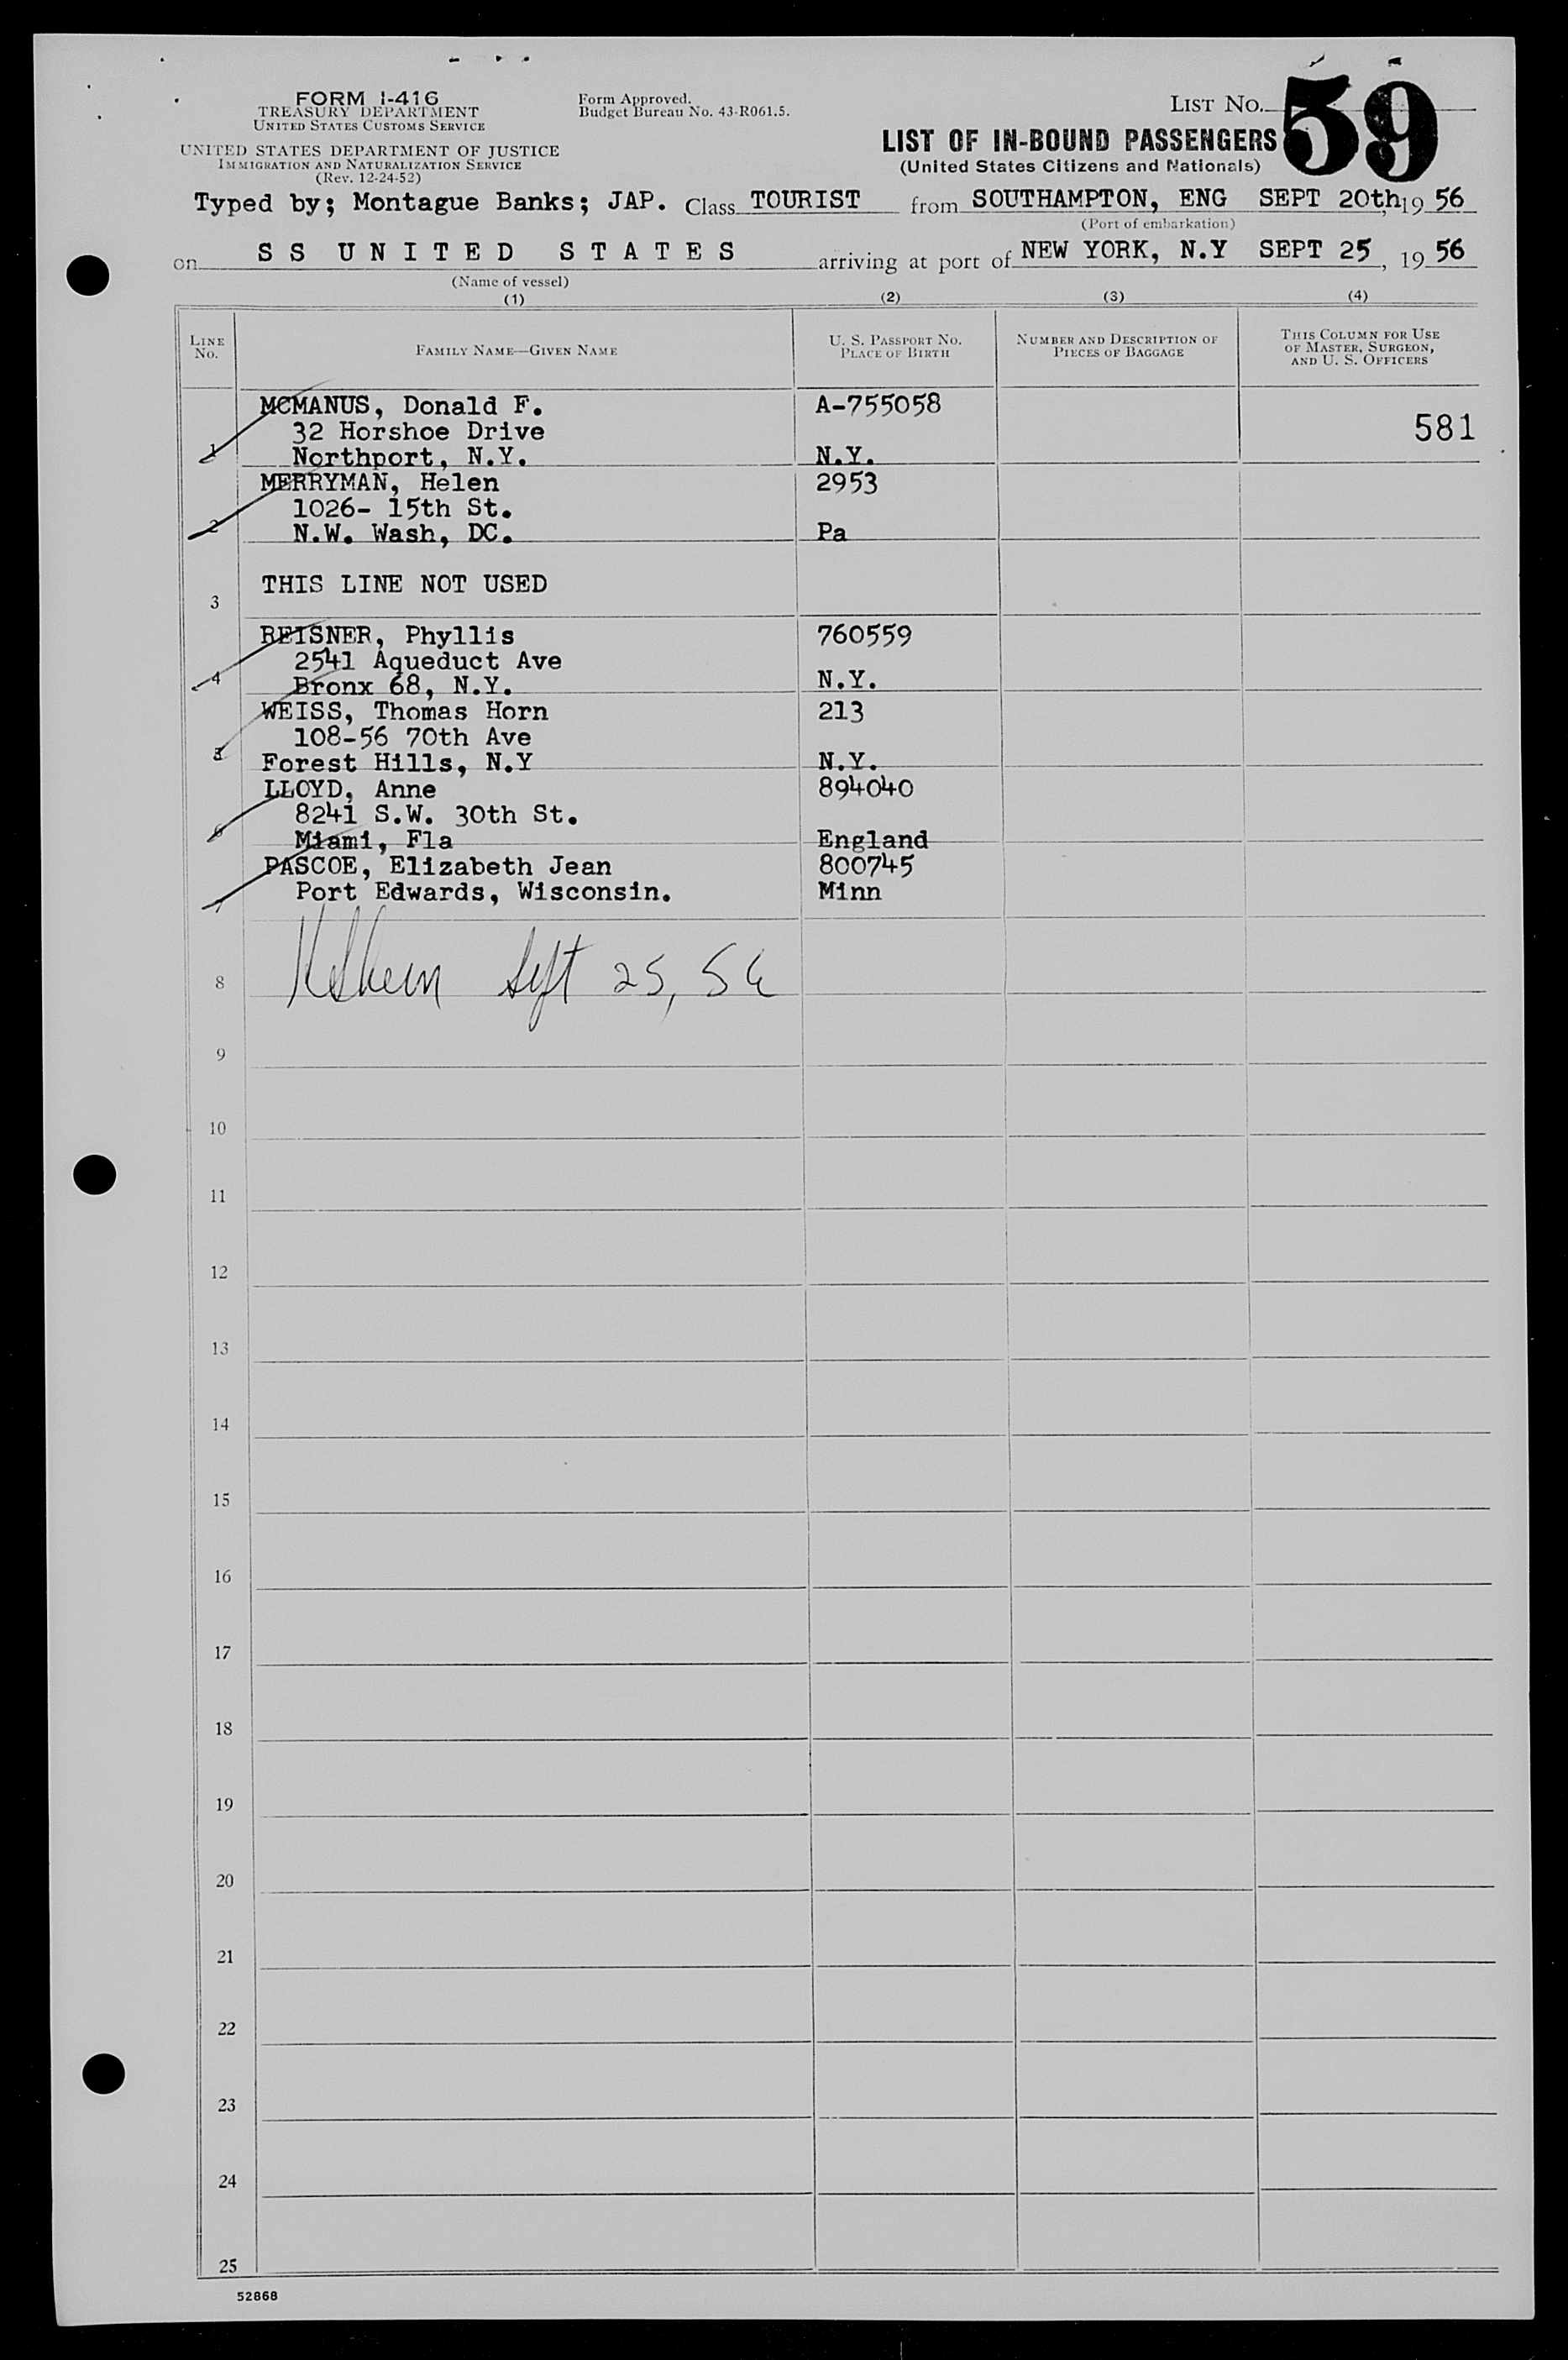 FORM I-416
TREASURY DEPARTMENT
UNITED STATES CUSTOMS SERVICE
UNITED STATES DEPARTMENT OF JUSTICE
IMMIGRATION AND NATURALIZATION SERVICE
(Rev. 12-24-52)
Form Approved.
Budget Bureau No. 43-R061.5.
LIST No. 59
LIST OF IN-BOUND PASSENGERS
(United States Citizens and Nationals)
Typed by; Montague Banks; JAP. Class TOURIST from SOUTHAMPTON, ENG SEPT 20th, 19 56
(Port of embarkation)
on S S U N I T E D S T A T E S arriving at port of NEW YORK, N.Y SEPT 25, 19 56
(Name of vessel)
(1) (2) (3) (4)
LINE No. FAMILY NAME—GIVEN NAME U. S. PASSPORT No. PLACE OF BIRTH NUMBER AND DESCRIPTION OF PIECES OF BAGGAGE THIS COLUMN FOR USE OF MASTER, SURGEON, AND U. S. OFFICERS
MCMANUS, Donald F. A-755058
32 Horshoe Drive 581
1 Northport, N.Y. N.Y.
MERRYMAN, Helen 2953
1026- 15th St.
2 N.W. Wash, DC. Pa
3 THIS LINE NOT USED
REISNER, Phyllis 760559
2541 Aqueduct Ave
4 Bronx 68, N.Y. N.Y.
WEISS, Thomas Horn 213
108-56 70th Ave
5 Forest Hills, N.Y N.Y.
LLOYD, Anne 894040
8241 S.W. 30th St.
6 Miami, Fla England
PASCOE, Elizabeth Jean 800745
7 Port Edwards, Wisconsin. Minn
8 Sept 25, 56
9
10
11
12
13
14
15
16
17
18
19
20
21
22
23
24
25
52868